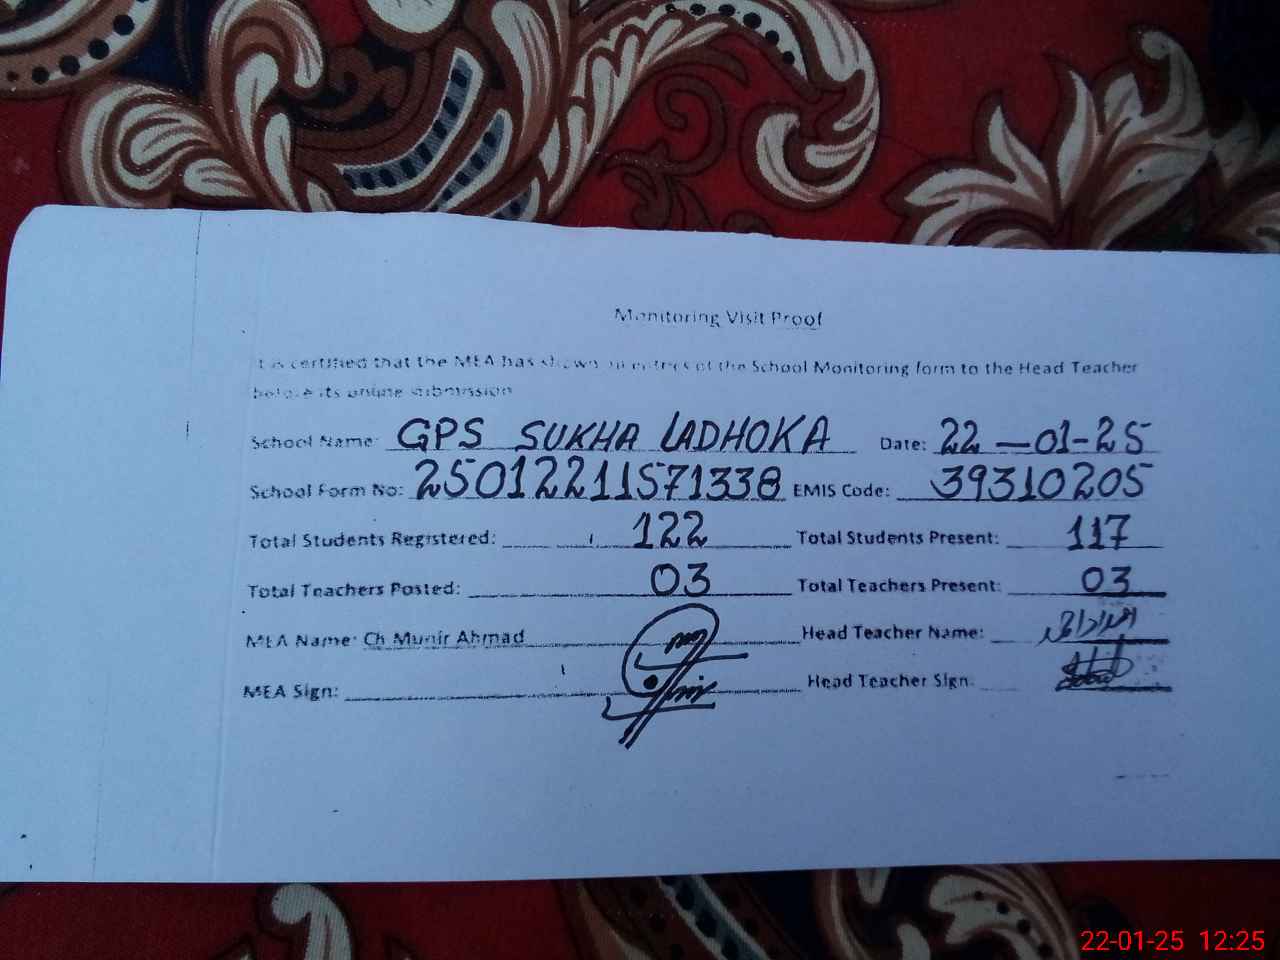 Monitoring Visit Proof
It is certified that the MEA has shown entries of the School Monitoring form to the Head Teacher
before its online submission
School Name: GPS SUKHA LADHOKA Date: 22-01-25
School Form No: 25012211571338 EMIS Code: 39310205
Total Students Registered: 122 Total Students Present: 117
Total Teachers Posted: 03 Total Teachers Present: 03
MEA Name: Ch Munir Ahmad Head Teacher Name:
MEA Sign: Head Teacher Sign:
22-01-25 12:25